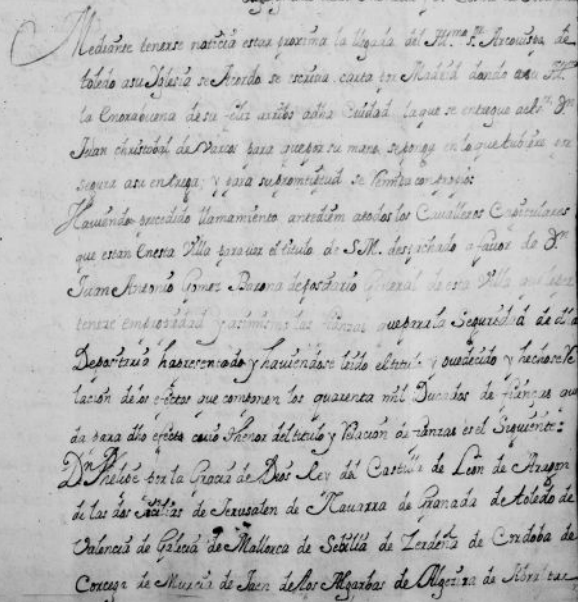 Mediante tenerse noticia estar proxima la llegada del Yll.mo S.r Arzobispo de
toledo asu Yglesia se Acordo se escriva carta por Madrid dando a su Yll.
la Enorabuena de su feliz arrivo adha Ciudad, la que se entregue a D.n
Juan christobal de para que por su mano se ponga en lo que tubiere por
segura asu entrega; y para su promptitud se remita con propio:
Haviendo precedido llamamiento antediem atodos los Cavalleros Capitulares
que estan enesta Villa para ver el titulo de S.M. despachado a favor de D.n
Juan Antonio Gomez Barona depositario General de esta Villa que
tenece en propiedad y asimismo las fianzas que para la Seguridad de dha
Depositaria ha presentado y haviendose leido el titulo y ovedecido y hechose Re
lacion de los efectos que componen los quarenta mil Ducados de fianzas que
da para dho efecto cuio thenor del titulo y Relacion de fianzas es el Siguiente:
D.n Phelipe por la Gracia de Dios Rey de Castilla de Leon de Aragon
de las dos Sicilias de Jerusalen de Navarra de Granada de toledo de
Valencia de Galicia de Mallorca de Sebilla de Zerdeña de Cordoba de
Corcega de Murcia de Jaen de los Algarbes de Algecira de Gibraltar